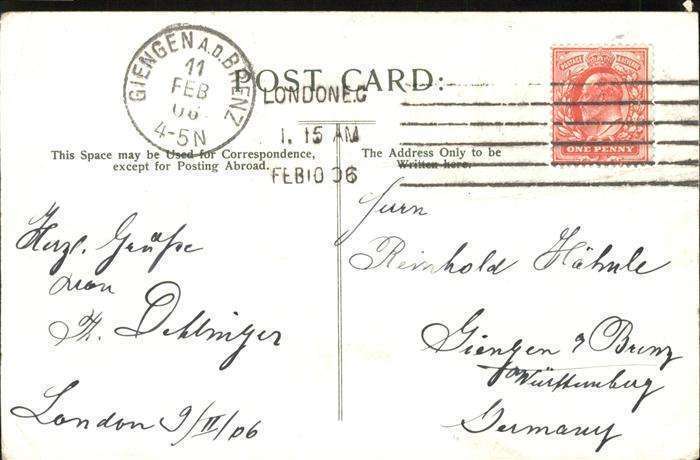 GIENGEN A.D. BRENZ
11
FEB
06
4-5N
POST CARD:
LONDON E.C
1. 15 AM
FEB 10 06
POSTAGE REVENUE
ONE PENNY
This Space may be Used for Correspondence,
except for Posting Abroad.
The Address Only to be
Written here.
Herzl. Grüße
von
Dehlinger
London 9/II/06
Herrn
Reinhold Hähnle
Giengen a Brenz
Württemberg
Germany